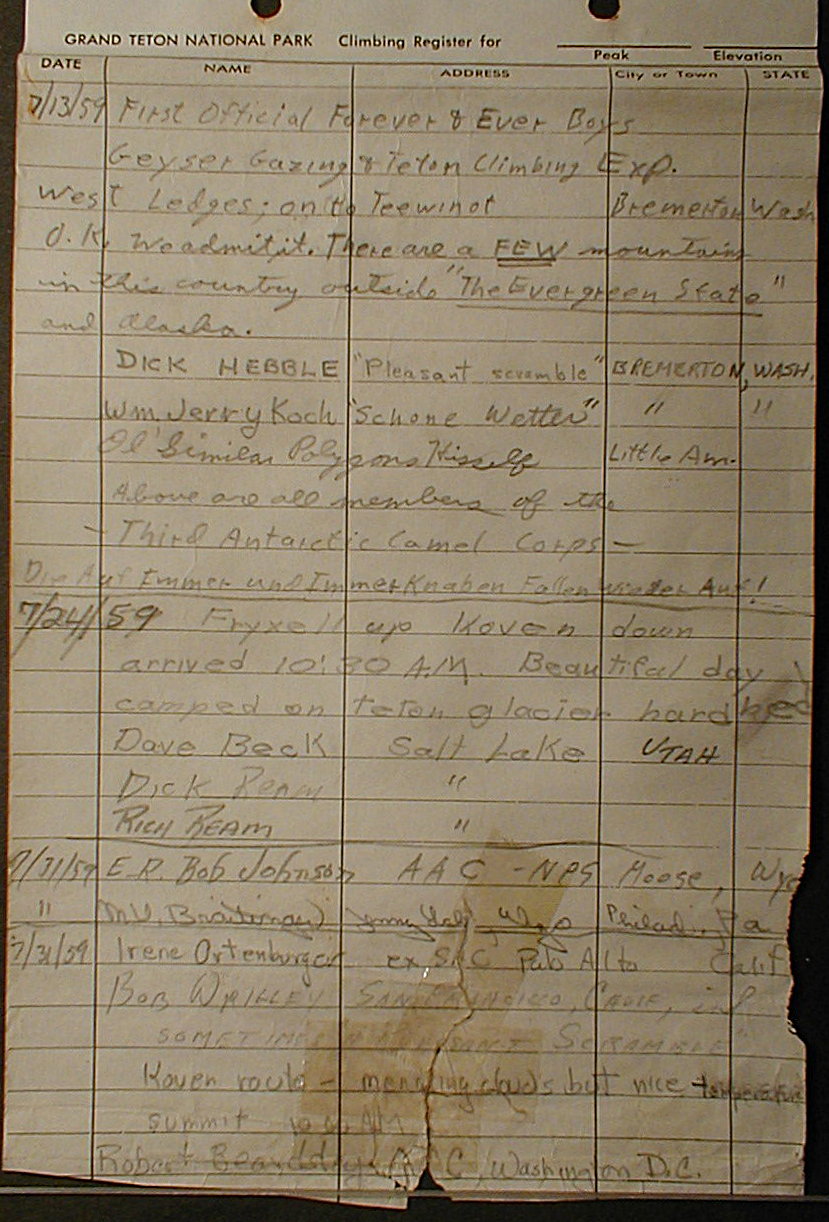 GRAND TETON NATIONAL PARK Climbing Register for
Peak Elevation
DATE NAME ADDRESS City or Town STATE
7/13/59 First Official Forever & Ever Boys
Geyser Gazing & Teton Climbing Exp.
West Ledges; on to Teewinot Bremerton Wash
O.K. We admit it. There are a FEW mountains
in this country outside "The Evergreen State"
and Alaska.
DICK HEBBLE "Pleasant scramble" BREMERTON, WASH.
Wm. Jerry Koch "Schone Wetter" " "
Ol' Similar Polygons Hisself Little Am.
Above are all members of the
- Third Antarctic Camel Corps -
Die Auf Immer und Immer Knaben Fallen Wieder Auf!
7/24/59 Fryxell up Koven down
arrived 10:30 A.M. Beautiful day
camped on teton glacier hard bed
Dave Beck Salt Lake UTAH
Dick Ream "
RICH REAM "
7/31/59 E.R. Bob Johnson AAC - NPS Moose, Wyo
" Philad., Pa
7/31/59 Irene Ortenburger ex SAC Palo Alto Calif
BOB SAN FRANCISCO, CALIF,
SOMETIMES SCRAMBLE"
Koven route - menacing clouds but nice temperature
summit AM
Robert Beardsley Washington D.C.